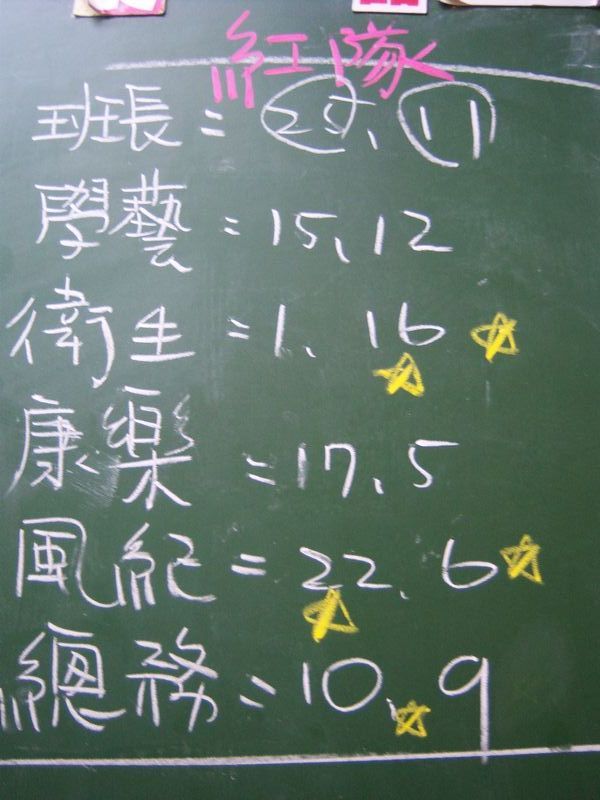 紅隊
班長=25、11
學藝=15、12
衛生=1、16
康樂=17、5
風紀=22、6
總務=10、9